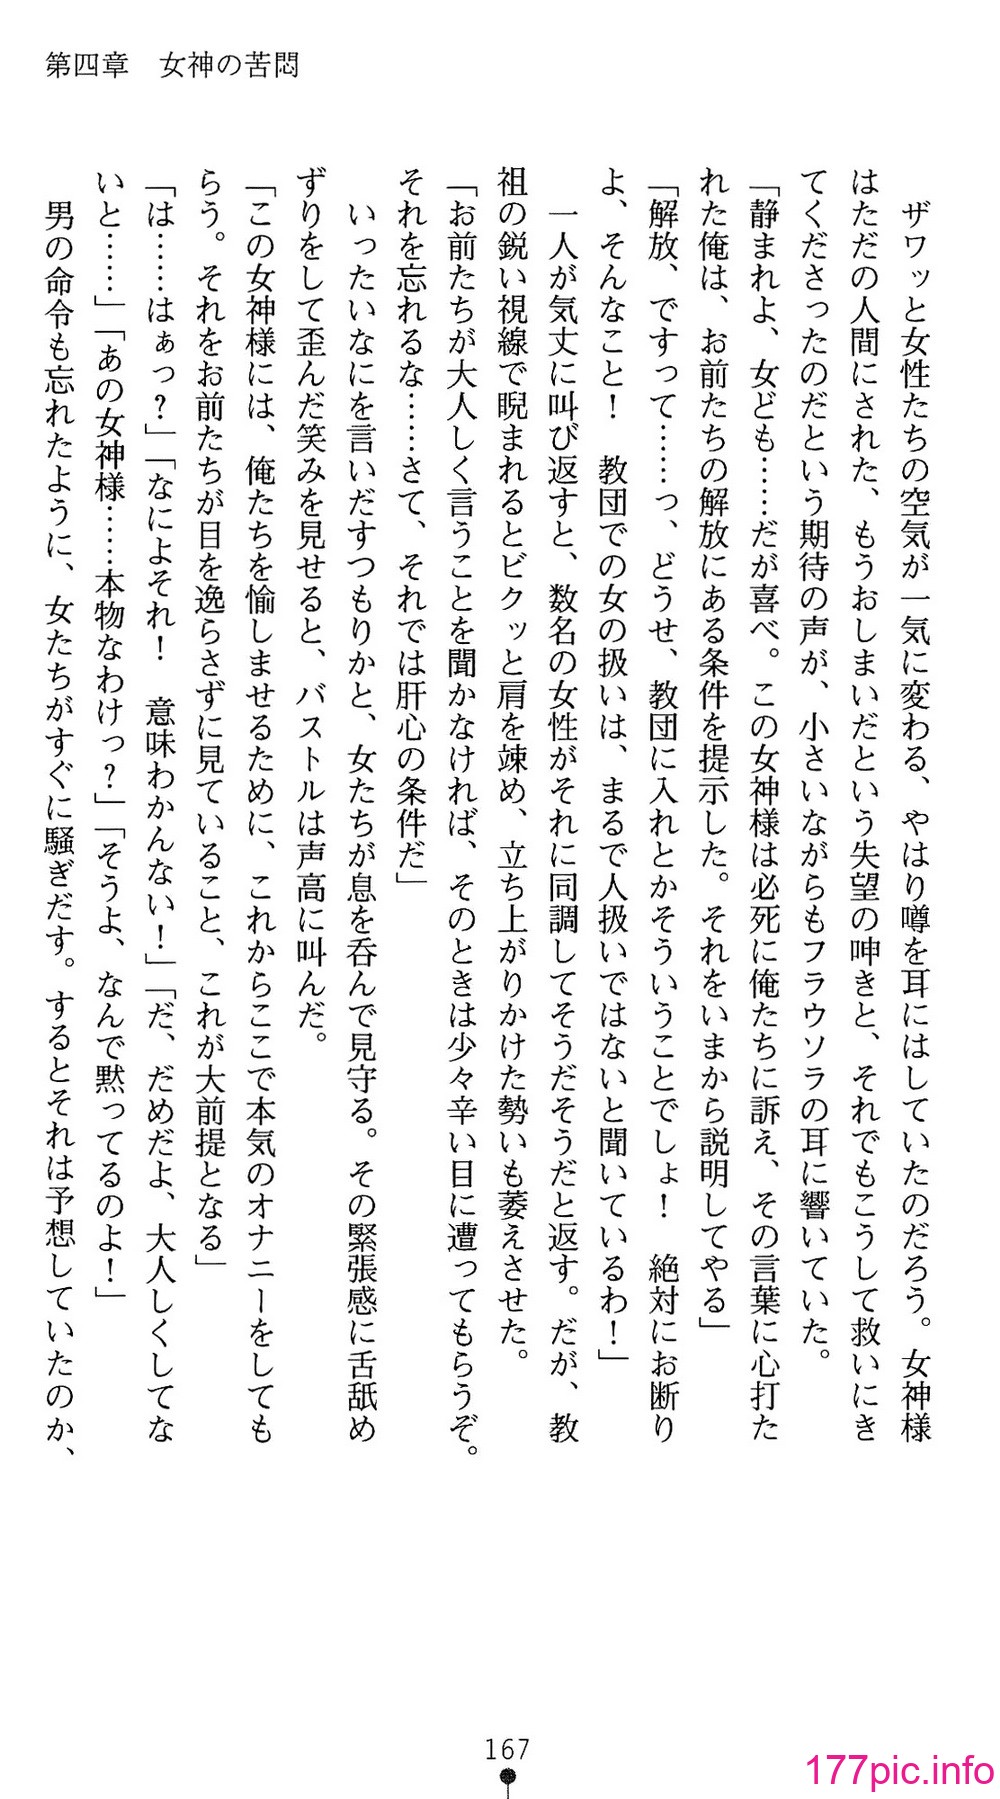 第四章　女神の苦悶
　ザワッと女性たちの空気が一気に変わる、やはり噂を耳にはしていたのだろう。女神様
はただの人間にされた、もうおしまいだという失望の呻きと、それでもこうして救いにき
てくださったのだという期待の声が、小さいながらもフラウソラの耳に響いていた。
「静まれよ、女ども……だが喜べ。この女神様は必死に俺たちに訴え、その言葉に心打た
れた俺は、お前たちの解放にある条件を提示した。それをいまから説明してやる」
「解放、ですって……っ、どうせ、教団に入れとかそういうことでしょ！　絶対にお断り
よ、そんなこと！　教団での女の扱いは、まるで人扱いではないと聞いているわ！」
　一人が気丈に叫び返すと、数名の女性がそれに同調してそうだそうだと返す。だが、教
祖の鋭い視線で睨まれるとビクッと肩を竦め、立ち上がりかけた勢いも萎えさせた。
「お前たちが大人しく言うことを聞かなければ、そのときは少々辛い目に遭ってもらうぞ。
それを忘れるな……さて、それでは肝心の条件だ」
　いったいなにを言いだすつもりかと、女たちが息を呑んで見守る。その緊張感に舌舐め
ずりをして歪んだ笑みを見せると、バストルは声高に叫んだ。
「この女神様には、俺たちを愉しませるために、これからここで本気のオナニーをしても
らう。それをお前たちが目を逸らさずに見ていること、これが大前提となる」
「は……はぁっ？」「なによそれ！　意味わかんない！」「だ、だめだよ、大人しくしてな
いと……」「あの女神様……本物なわけっ？」「そうよ、なんで黙ってるのよ！」
　男の命令も忘れたように、女たちがすぐに騒ぎだす。するとそれは予想していたのか、
167
177pic.info